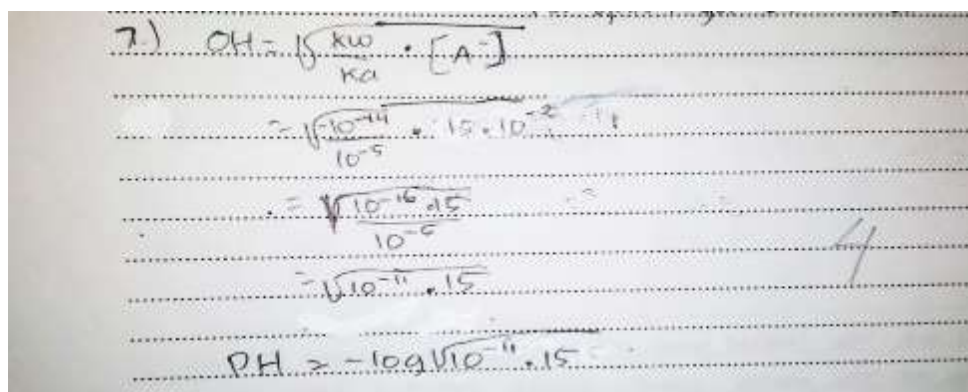 7.) OH = √(Kw/Ka · [A⁻])
= √(10⁻¹⁴/10⁻⁵ · 15·10⁻²)
= √(10⁻¹⁶·15/10⁻⁵)
= √(10⁻¹¹ · 15)
4
PH = -log√(10⁻¹¹ · 15)